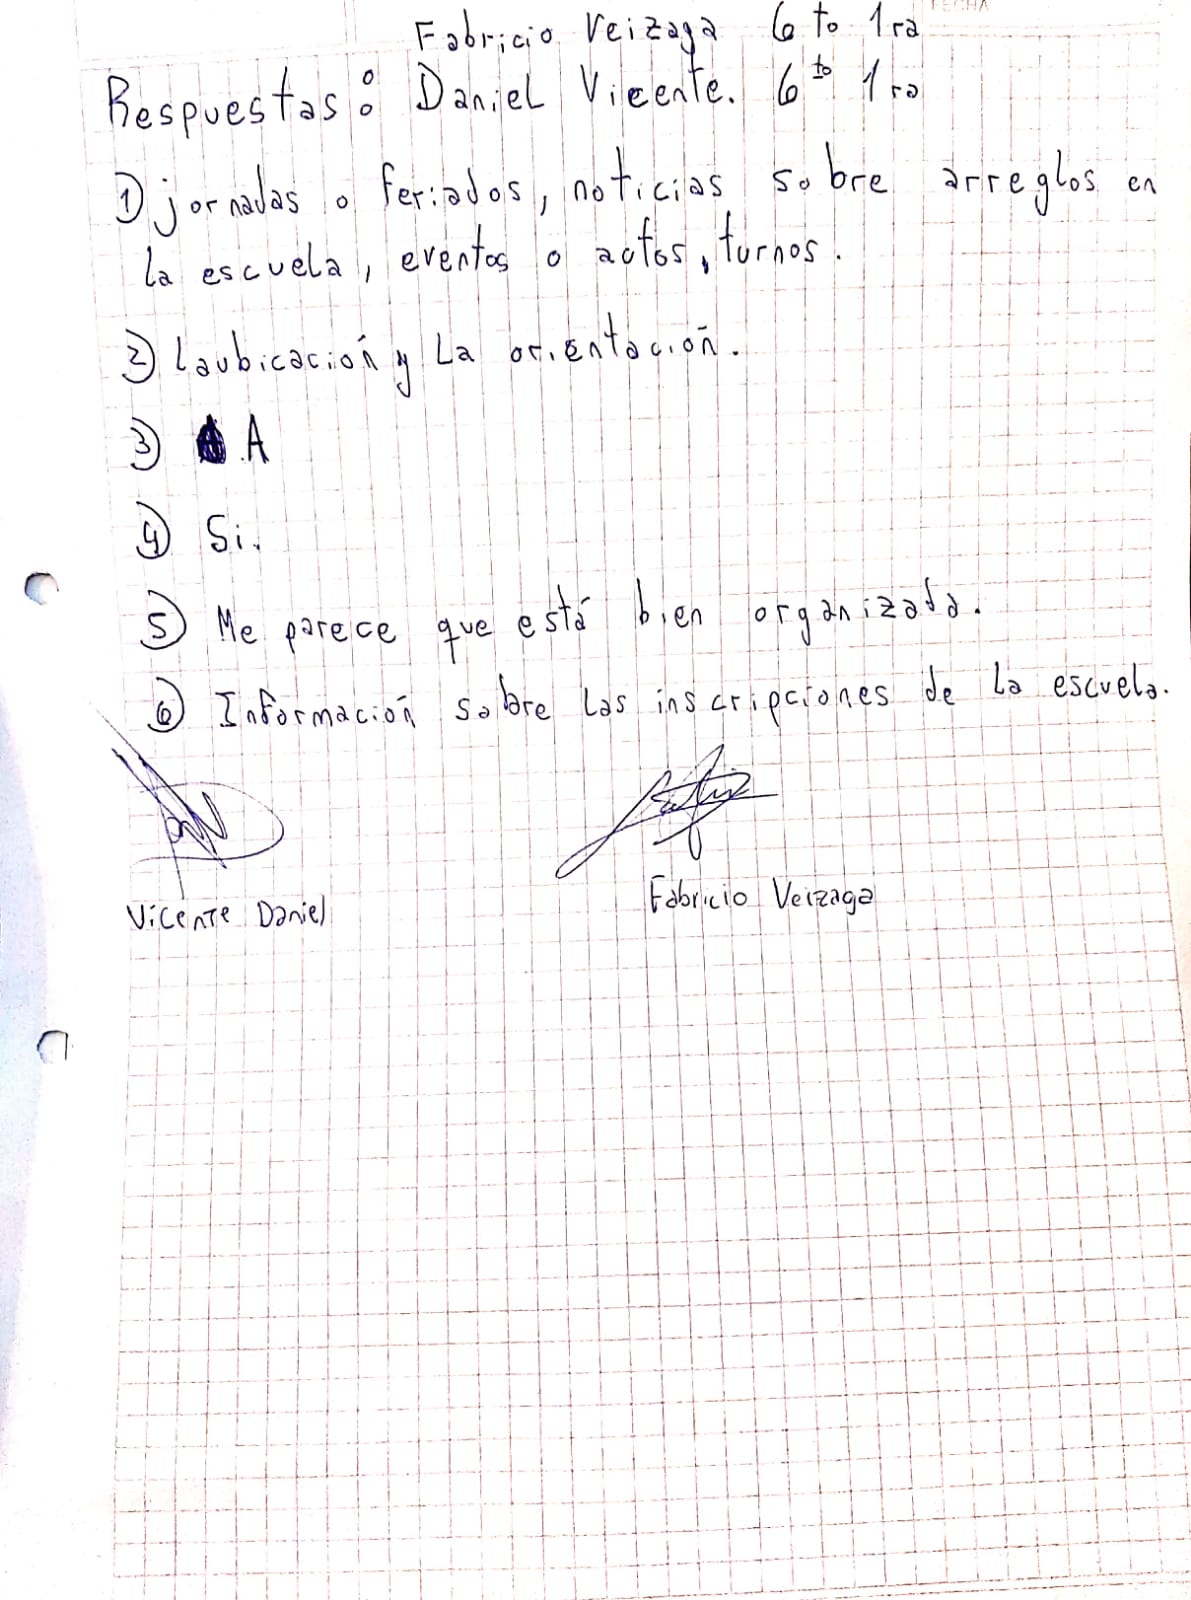 FECHA
Fabricio Veizaga 6 to 1ra
Respuestas: Daniel Vicente. 6to 1ra
1) jornadas o feriados, noticias sobre arreglos en
la escuela, eventos o actos, turnos.
2) La ubicación y La orientación.
3) A
4) Si.
5) Me parece que está bien organizada.
6) Información sobre las inscripciones de la escuela.
Vicente Daniel Fabricio Veizaga